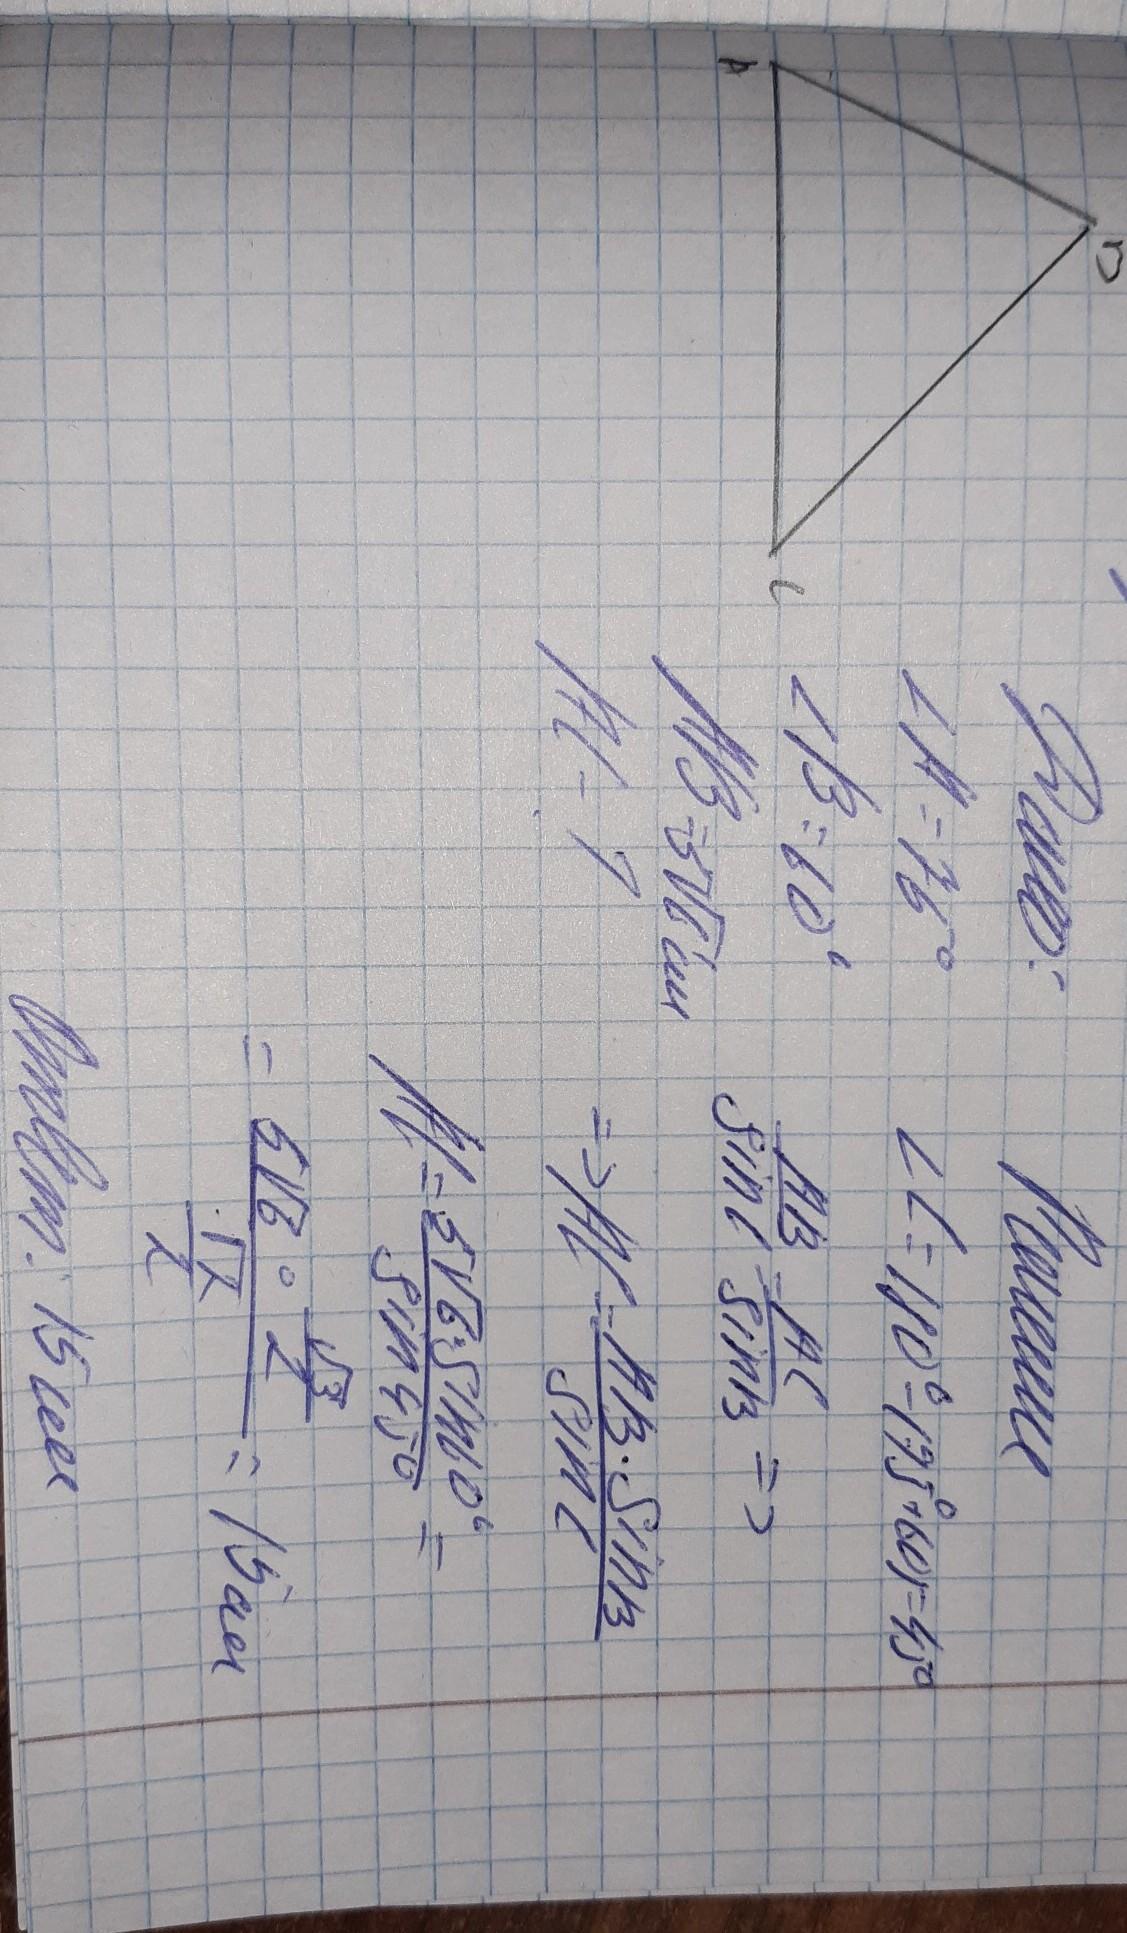 A
B
C
Дано:
∠A=75°
∠B=60°
AB=5√6 см
AC-?
Решение
∠C=180°-(75°+60)=45°
AB/sinC = AC/sinB =>
=> AC = AB·sinB/sinC
AC = 5√6·sin60°/sin45° =
= 5√6 · √3/2 / √2/2 = 15см
Ответ: 15см